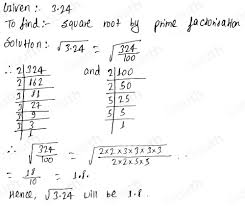 Given :- 3.24
To find :- square root by prime factorisation
Solution : √3.24 = √324/100
∴ 2 | 324 and 2 | 100
2 | 162 2 | 50
3 | 81 5 | 25
3 | 27 5 | 5
3 | 9 1
3 | 3
1
∴ √324/100 = √2×2×3×3×3×3/2×2×5×5 ..
= 18/10 = 1.8.
Hence, √3.24 will be 1.8.